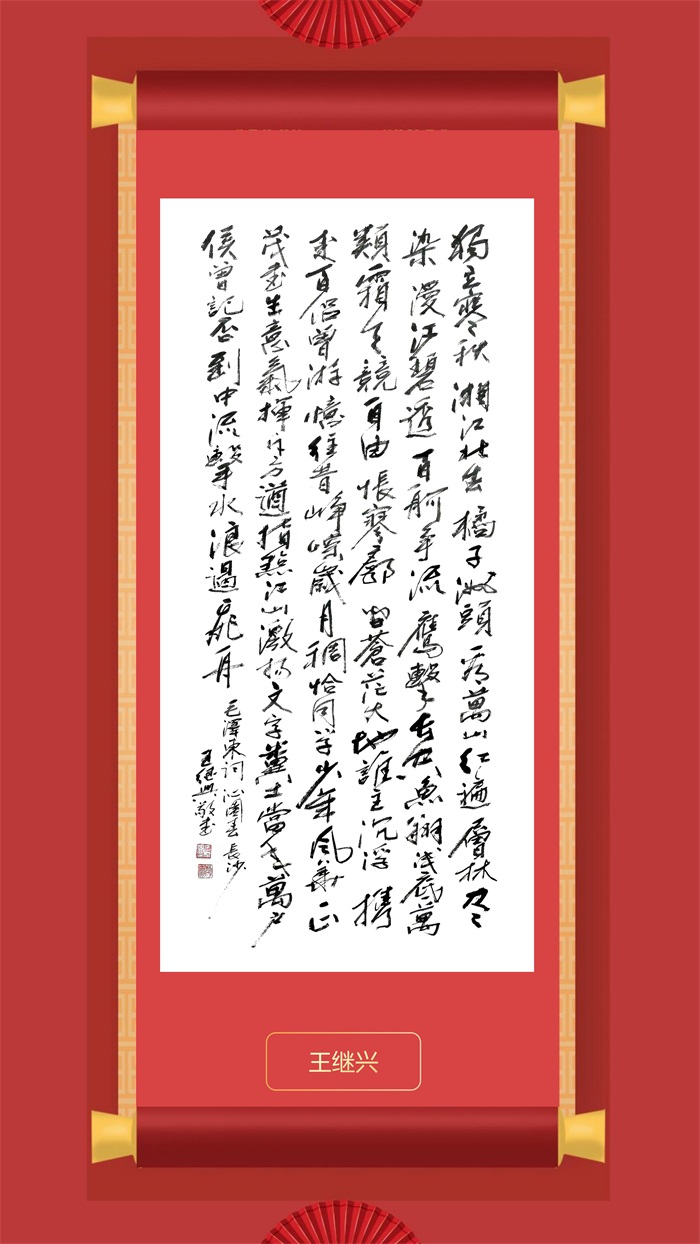 獨立寒秋湘江北去橘子洲頭看萬山红遍層林尽
染漫江碧透百舸争流鹰擊長空魚翔浅底萬
類霜天競自由悵寥廓問蒼茫大地誰主沉浮携
来百侣曾游憶往昔峥嵘歲月稠恰同学少年风華正
茂書生意氣揮斥方遒指點江山激扬文字糞土當年萬户
侯曾記否到中流擊水浪遏飛舟
毛澤東词沁園春長沙
王继兴敬書
王继兴